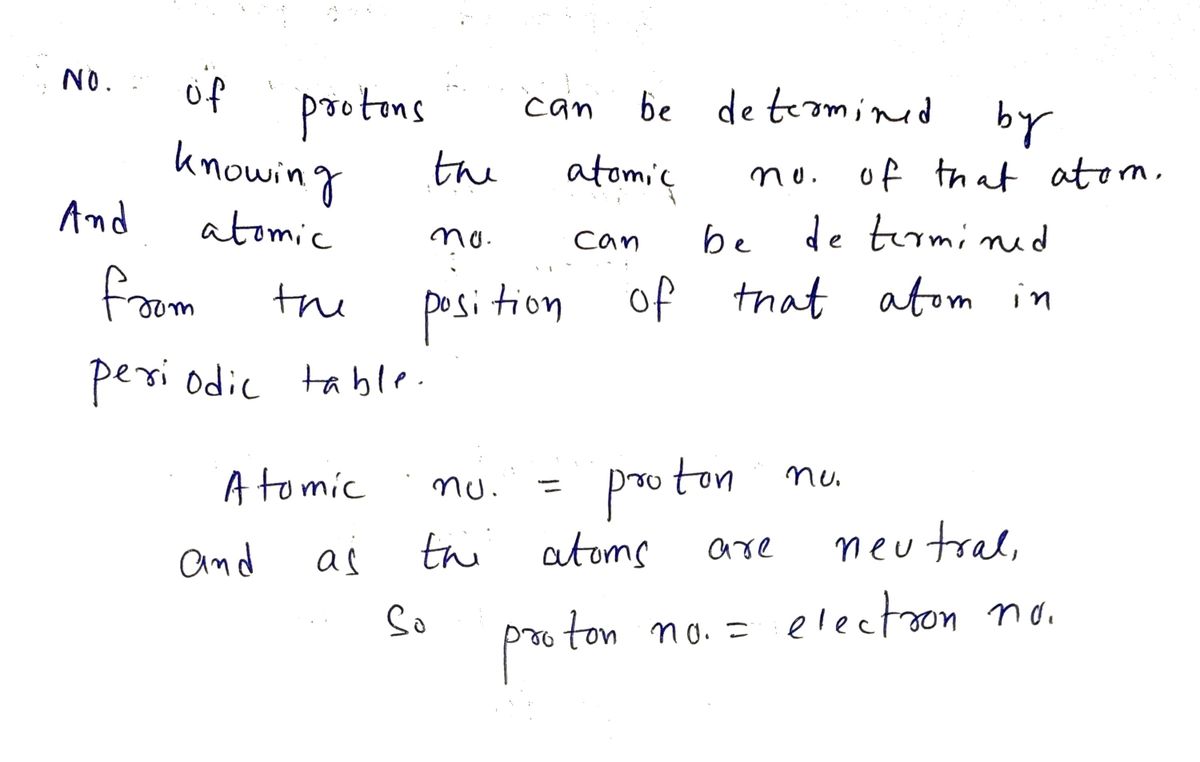 No. of protons can be determined by
knowing the atomic no. of that atom.
And atomic no. can be determined
from the position of that atom in
periodic table.
Atomic no. = proton no.
and as the atoms are neutral,
So proton no. = electron no.